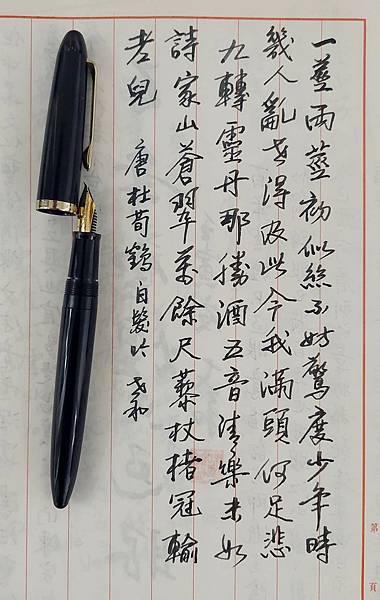 一莖兩莖初似絲不妨驚度少年時
幾人亂世得及此今我滿頭何足悲
九轉靈丹那勝酒五音清樂未如
詩家山蒼翠萬餘尺藜杖楮冠輸
老兒 唐杜荀鶴白髮吟
第 頁